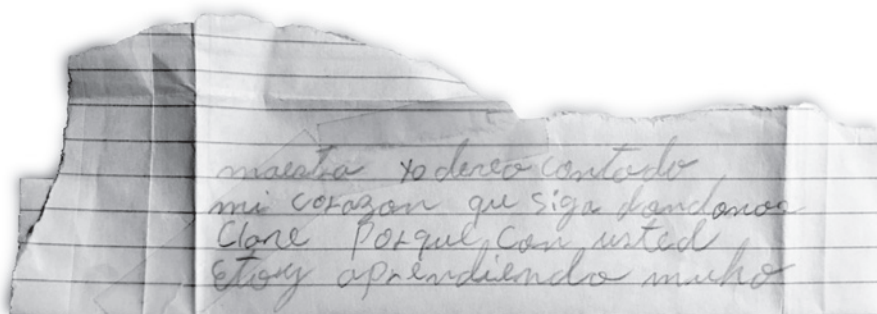 maestra yo deceo contodo
mi corazon que siga dandonos
Clane Porque con usted
Etoy aprendiendo muho